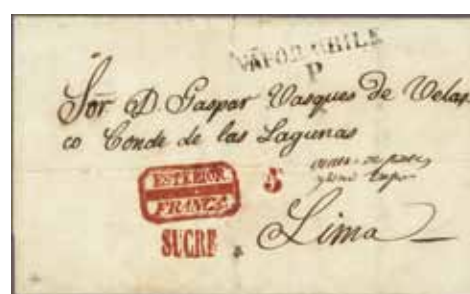 VAPOR CHILE
P
Sor D. Gaspar Vasques de Velas
co Conde de las Lagunas
ESTERIOR
FRANCA
5
SUCRE
Lima